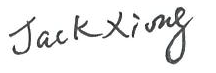 Jack Xiong